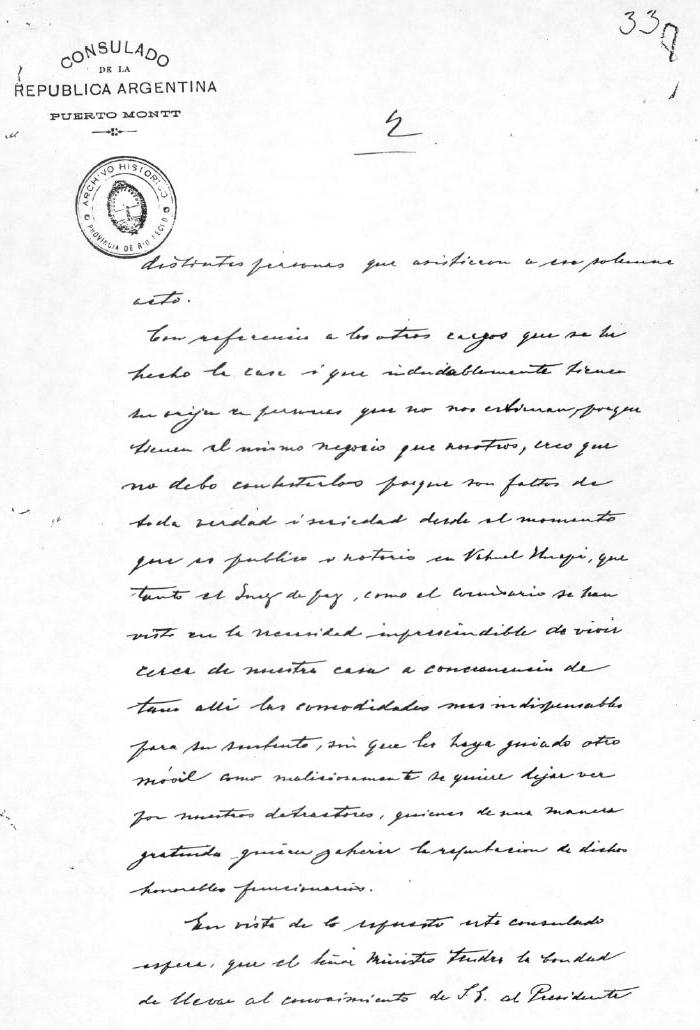 33
CONSULADO
DE LA
REPUBLICA ARGENTINA
PUERTO MONTT
2
ARCHIVO HISTORICO
PROVINCIA DE RIO NEGRO
distintas personas que asistieron a ese solemne
acto.
Con referencia a los otros cargos que se ha
hecho la casa i que indudablemente tienen
su orijen en personas que no nos estiman, porque
tienen el mismo negocio que nosotros, creo que
no debo contestarlos porque son faltos de
toda verdad i seriedad desde el momento
que es publico o notorio en Nahuel Huapi, que
tanto el Juez de paz, como el comisario se han
visto en la necesidad imprescindible de vivir
cerca de nuestra casa a consecuencia de
tener alli las comodidades mas indispensables
para su sustento, sin que les haya guiado otro
móvil como maliciosamente se quiere dejar ver
por nuestros detractores, quienes de una manera
gratuita quieren zaherir la reputacion de dichos
honorables funcionarios.
En vista de lo espuesto este consulado
espera, que el Señor Ministro tendra la bondad
de llevar al conocimiento de S.E. el Presidente